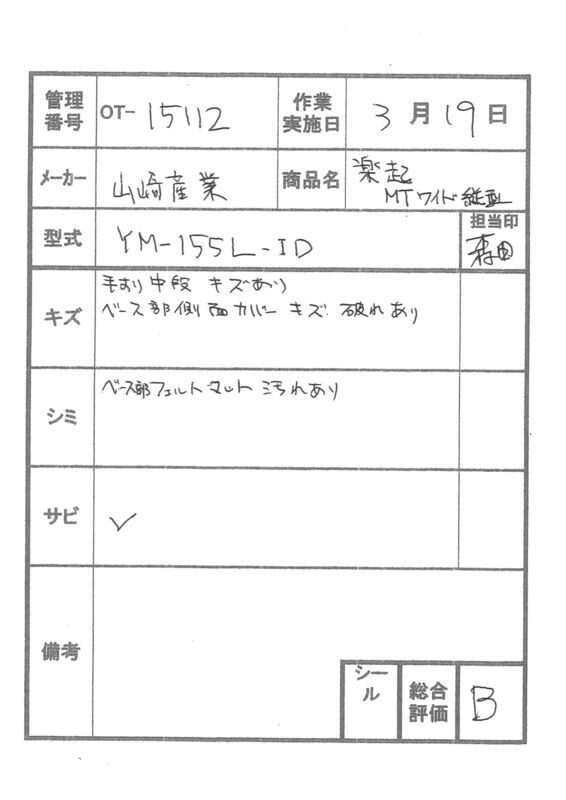 管理番号 OT-15112 作業実施日 3月19日
メーカー 山崎産業 商品名 楽起
MTワイド縦型
型式 YM-155L-ID 担当印
森田
キズ 手すり中段 キズあり
ベース部側面カバー キズ 破れあり
シミ ベース部フェルトマット 汚れあり
サビ ✓
備考
シール 総合評価 B